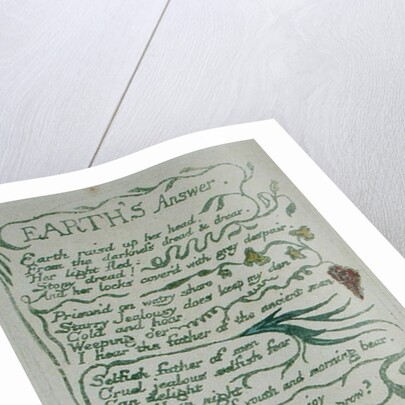 EARTH'S Answer.
Earth rais'd up her head,
From the darkness dread & drear.
Her light fled:
Stony dread!
And her locks cover'd with grey despair.
Prison'd on watry shore
Starry Jealousy does keep my den
Cold and hoar
Weeping o'er
I hear the father of the ancient men
Selfish father of men
Cruel jealous selfish fear
Can delight
night
youth and morning bear
joy
grow?